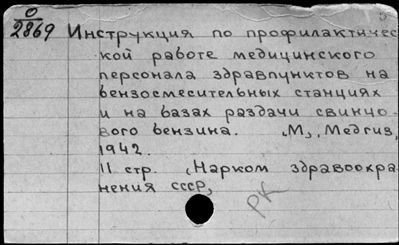 0
2869 Инструкция по профилактичес
кой работе медицинского
персонала здравпунктов на
бензосмесительных станциях
и на базах раздачи свинцо-
вого бензина. „М“, Медгиз,
1942.
11 стр. „Нарком здравоохра-
нения СССР“,
РК